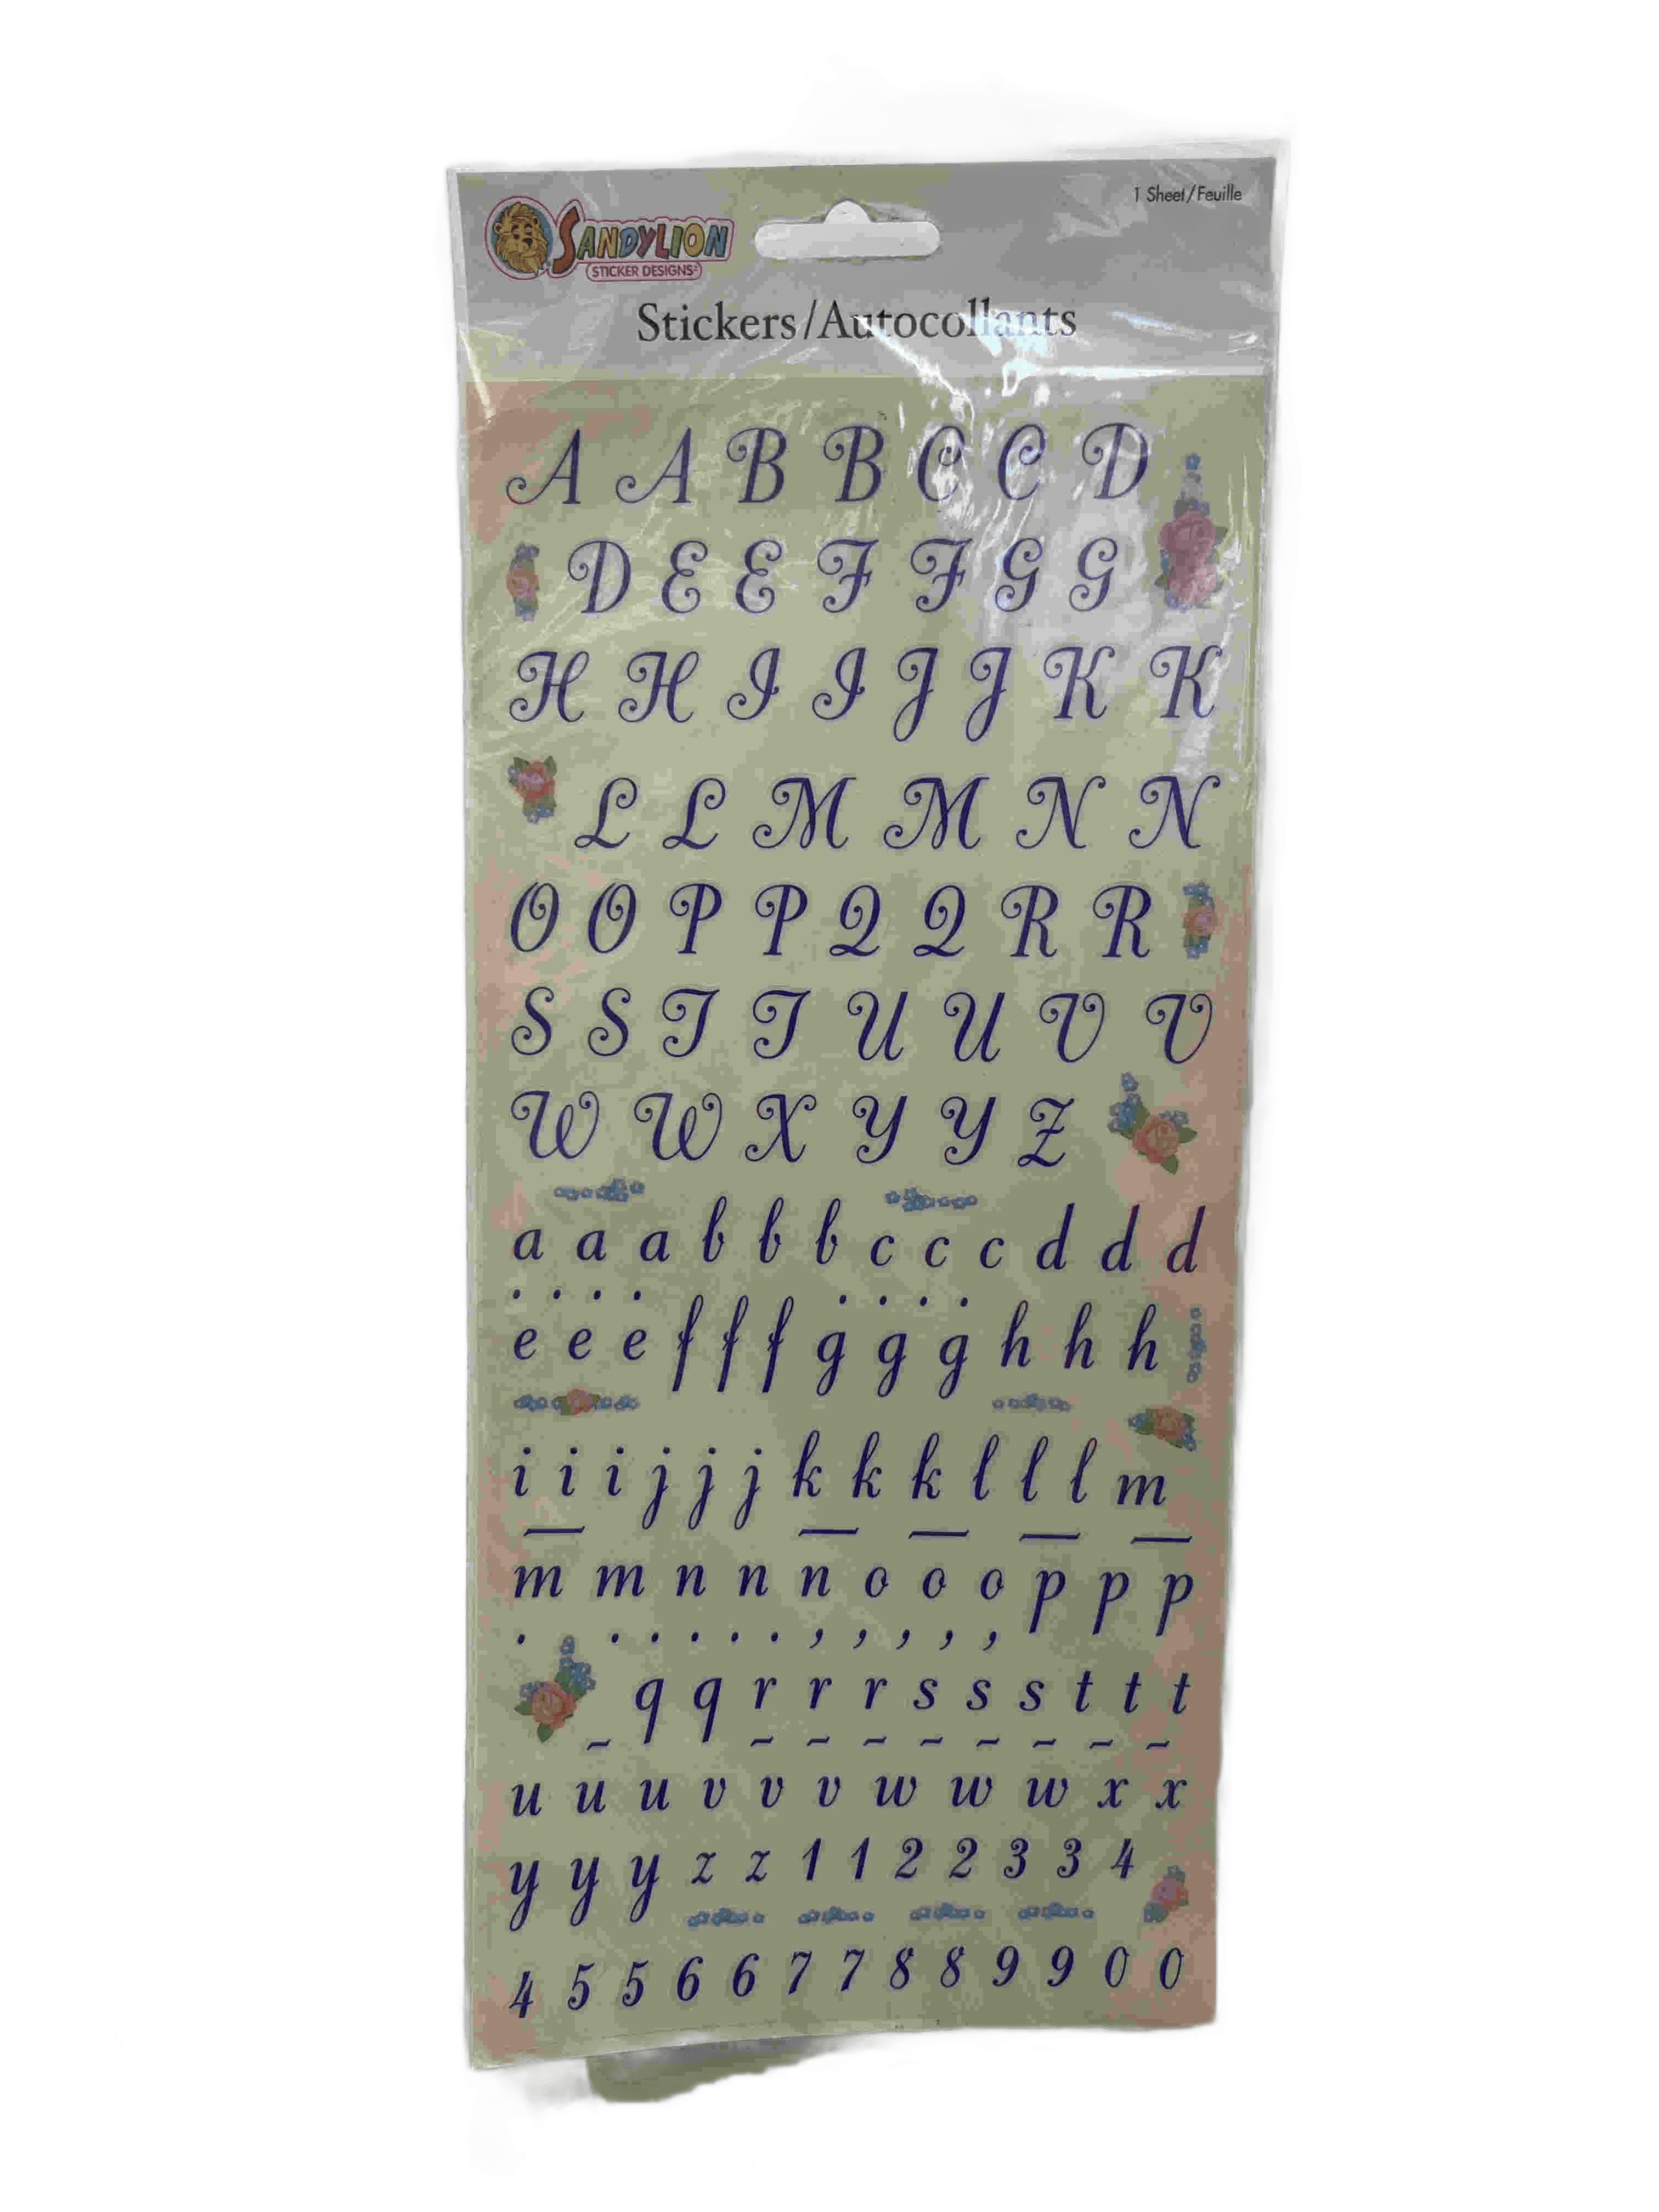 1 Sheet/Feuille
SANDYLION
STICKER DESIGNS
Stickers/Autocollants
A A B B C C D
D E E F F G G
H H I I J J K K
L L M M N N
O O P P Q Q R R
S S T T U U V V
W W X Y Y Z
a a a b b b c c c d d d
. . . . . . . .
e e e f f f g g g h h h
i i i j j j k k k l l l m
— — — — —
m m n n n o o o p p p
. . . . . . , , , , ,
q q r r r s s s t t t
~ ~ ~ ~ ~ ~ ~ ~ ~
u u u v v v w w w x x
y y y z z 1 1 2 2 3 3 4
4 5 5 6 6 7 7 8 8 9 9 0 0